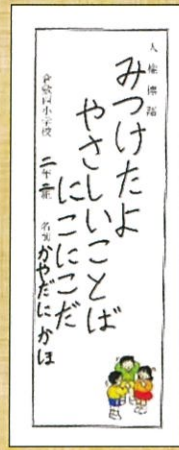 人権標語
みつけたよ
やさしいことば
にこにこだ
倉敷西小学校 二年二組 名前 かやだに かほ